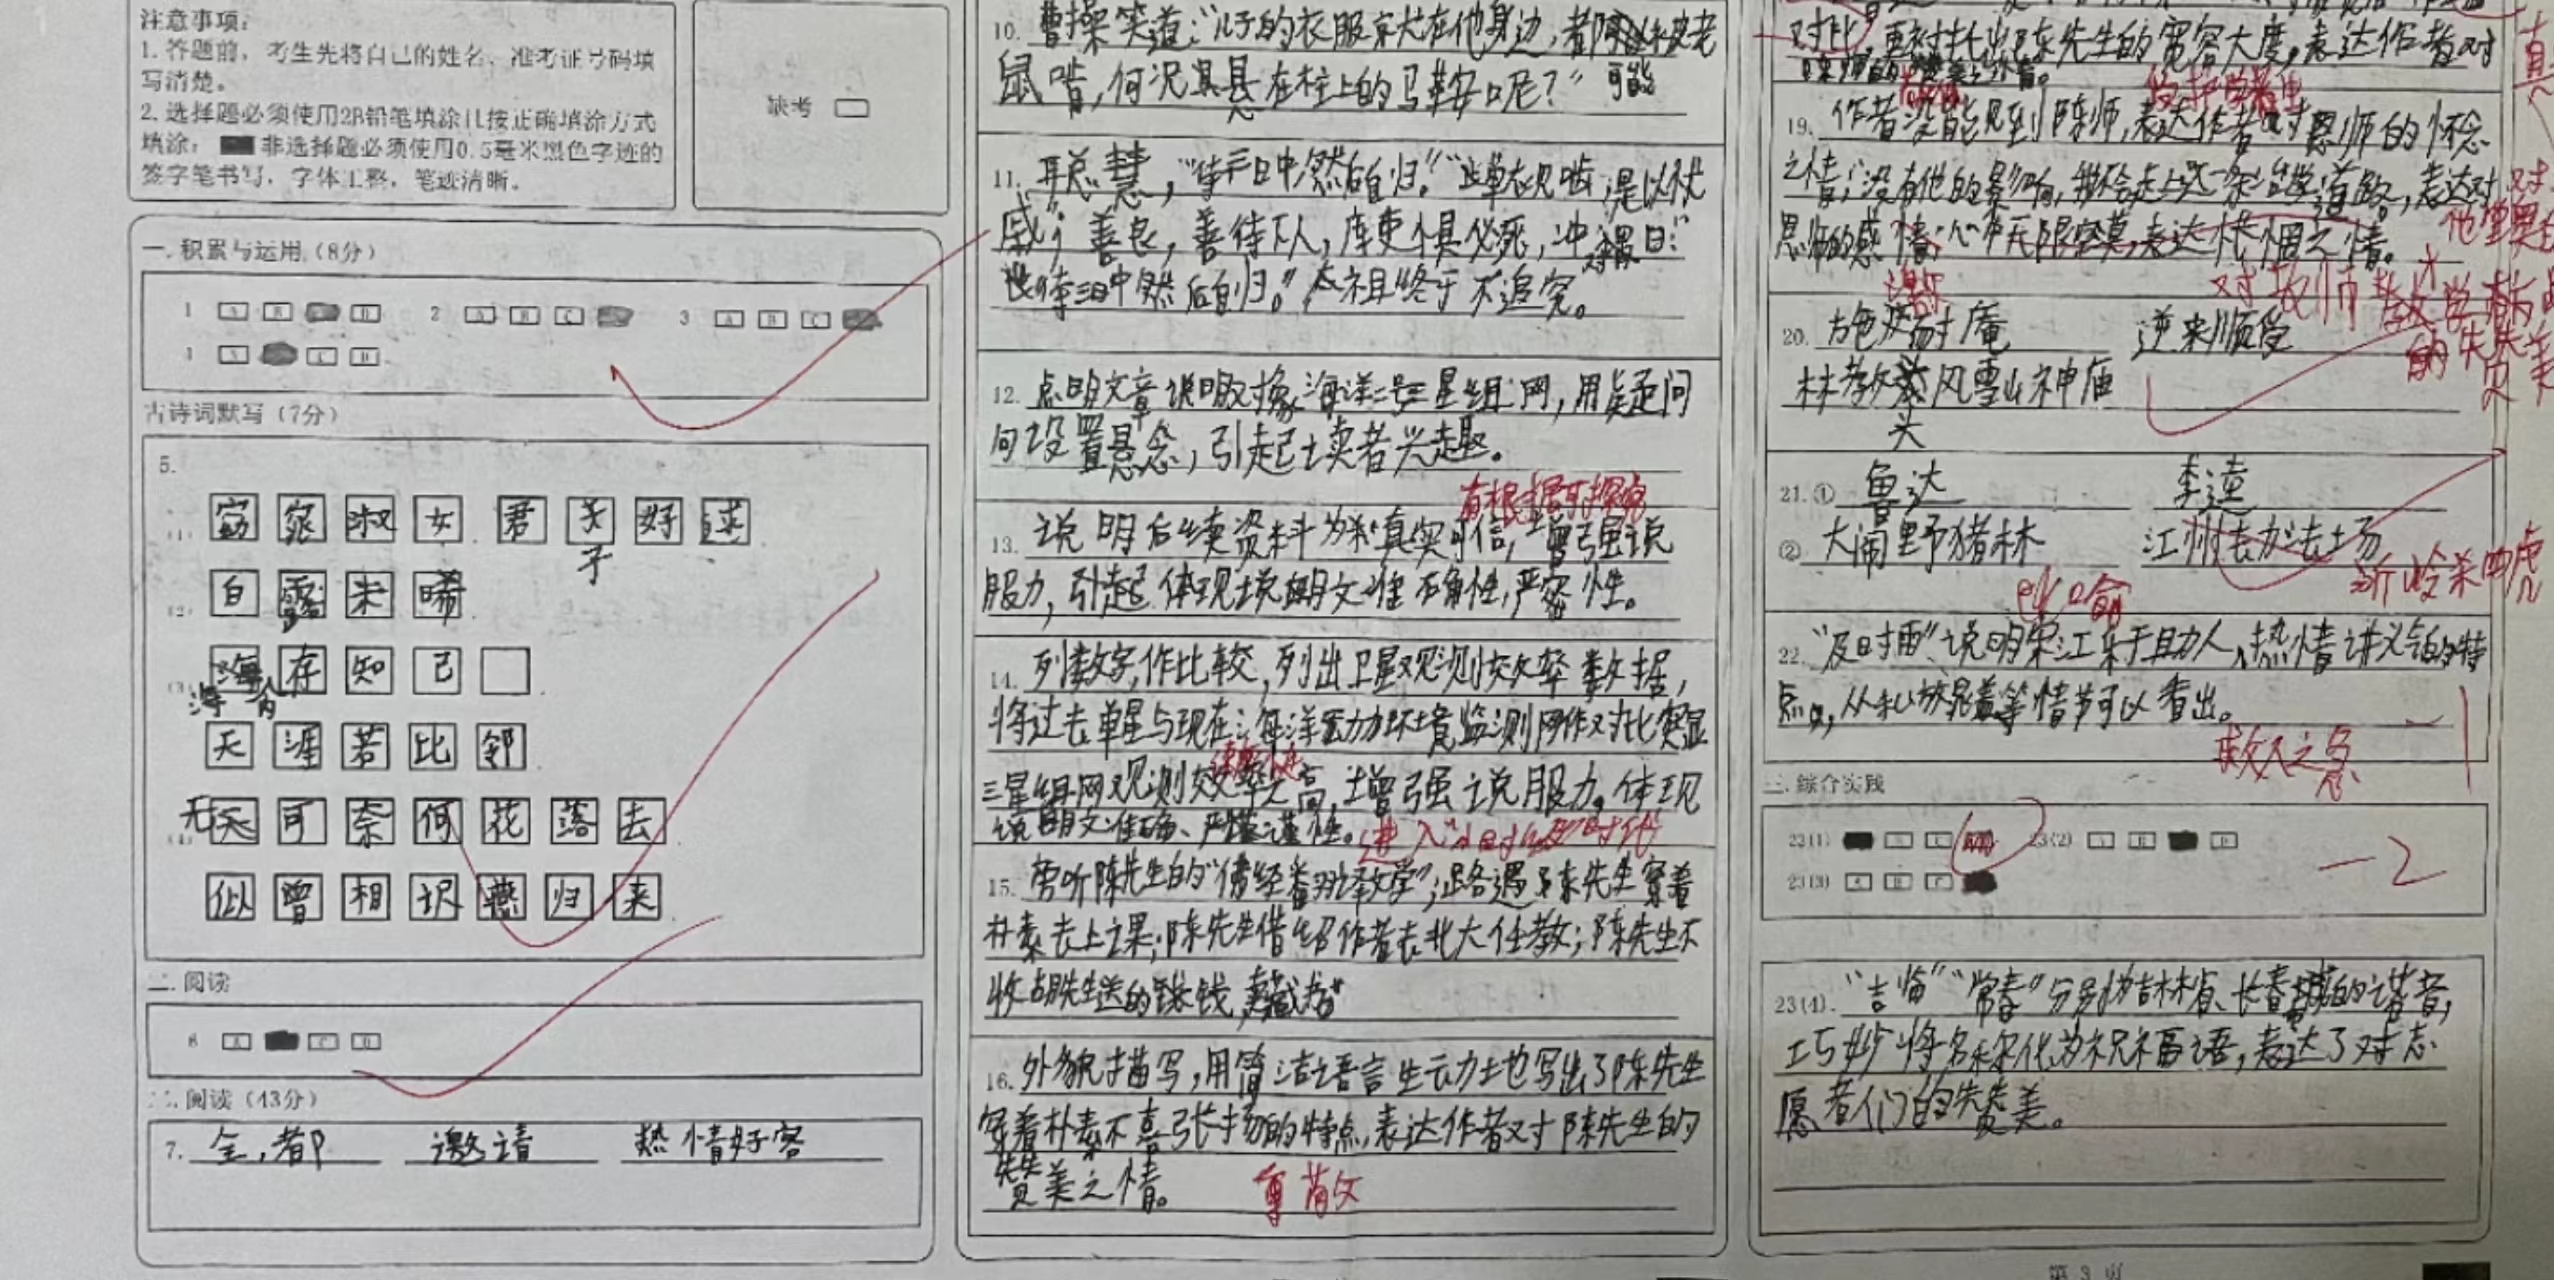 注意事项：
1. 答题前，考生先将自己的姓名、准考证号码填
写清楚。
2. 选择题必须使用2B铅笔填涂；按正确填涂方式
填涂；非选择题必须使用0.5毫米黑色字迹的
签字笔书写，字体工整，笔迹清晰。
缺考
一.积累与运用（8分）
1 A B D
2 A B C
3 A B C
A C D
古诗词默写（7分）
5.
(1) 窈窕淑女 君子好逑
(2) 白露未晞
(3) 海内存知己
天涯若比邻
(4) 无可奈何花落去
似曾相识燕归来
二.阅读
6 A C D
二.阅读（43分）
7. 全,都 邀请 热情好客
10. 曹操笑道：“儿子的衣服就在他身边，都
鼠啃，何况其悬在柱上的马鞍呢？” 可能
11. 聪慧，“待三日中然后自归。”
善良，善待下人，库吏惧必死，冲谓曰：“
待三日中然后自归。”太祖终于不追究。
12. 点明文章说明对象海洋二号三星组网，用疑问
句设置悬念，引起读者兴趣。
有根据可探究
13. 说明后续资料为真实可信，增强说
服力，引起体现说明文准确性，严密性。
14. 列数字，作比较，列出卫星观测效率数据，
将过去单星与现在海洋动力环境监测网作对比突显
三星组网观测效率之高，增强说服力。体现
说明文准确、严谨性。
进入“小时级”时代
15. 旁听陈先生的“佛经翻译文学”；路遇陈先生穿着
朴素去上课；陈先生借绍作者去北大任教；陈先生不
收胡先生送的钱，
16. 外貌描写，用简洁语言生动地写出了陈先生
穿着朴素不喜张扬的特点，表达作者对陈先生的
赞美之情。 尊敬
对比，更衬托出陈先生的宽容大度，表达作者对
19. 作者没能见到陈师，表达作者对恩师的怀念
之情；没有他的影响，我不会走上这一条治学道路。表达对
恩师的感情；心怀无限 表达怅惘之情。
20. 施耐庵 逆来顺受
林教头风雪山神庙
21. ① 鲁达 李逵
② 大闹野猪林 江州劫法场
沂岭杀四虎
比喻
22. “及时雨”说明宋江乐于助人，热情讲义气的特
点，从私放晁盖等情节可以看出。
救人之急 -1
三.综合实践
23(1) 23(2) A B D
23(3) A B C
-2
23(4). “吉临”“常春”分别为吉林省、长春的谐音，
巧妙将名称化为祝福语，表达了对志
愿者们的赞美。
第 3 页